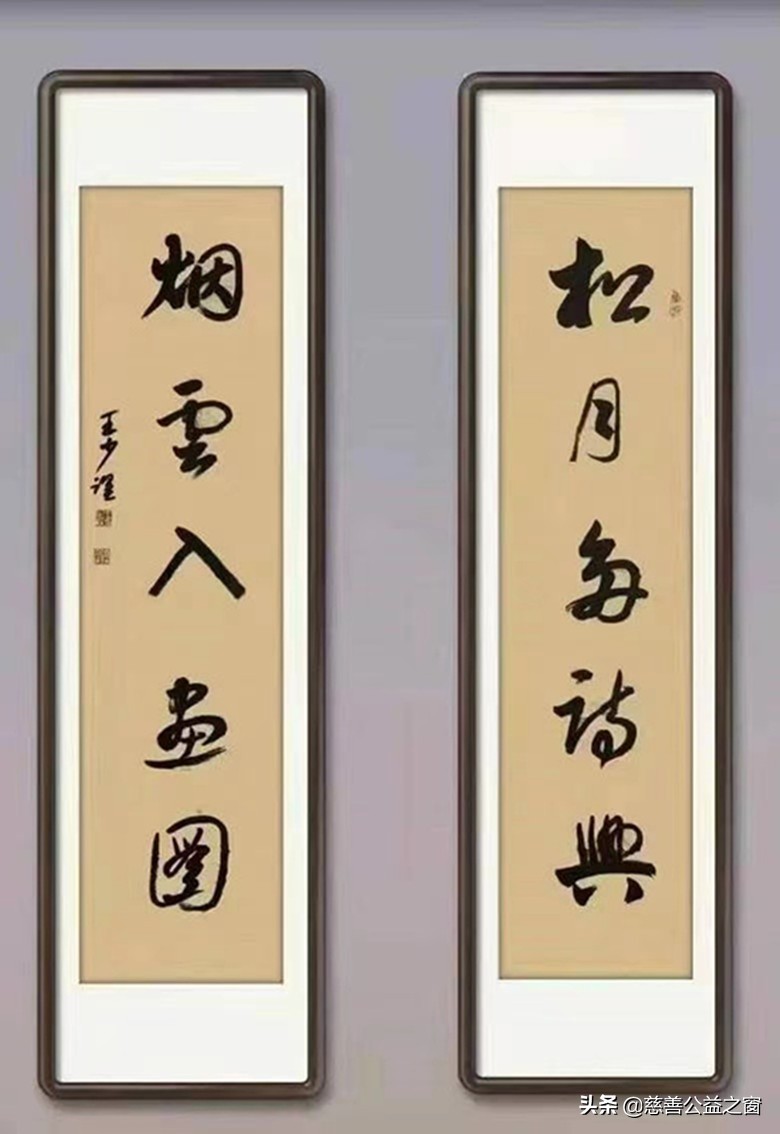 松月每詩興
烟雲入畫圖
王少
头条 @慈善公益之窗